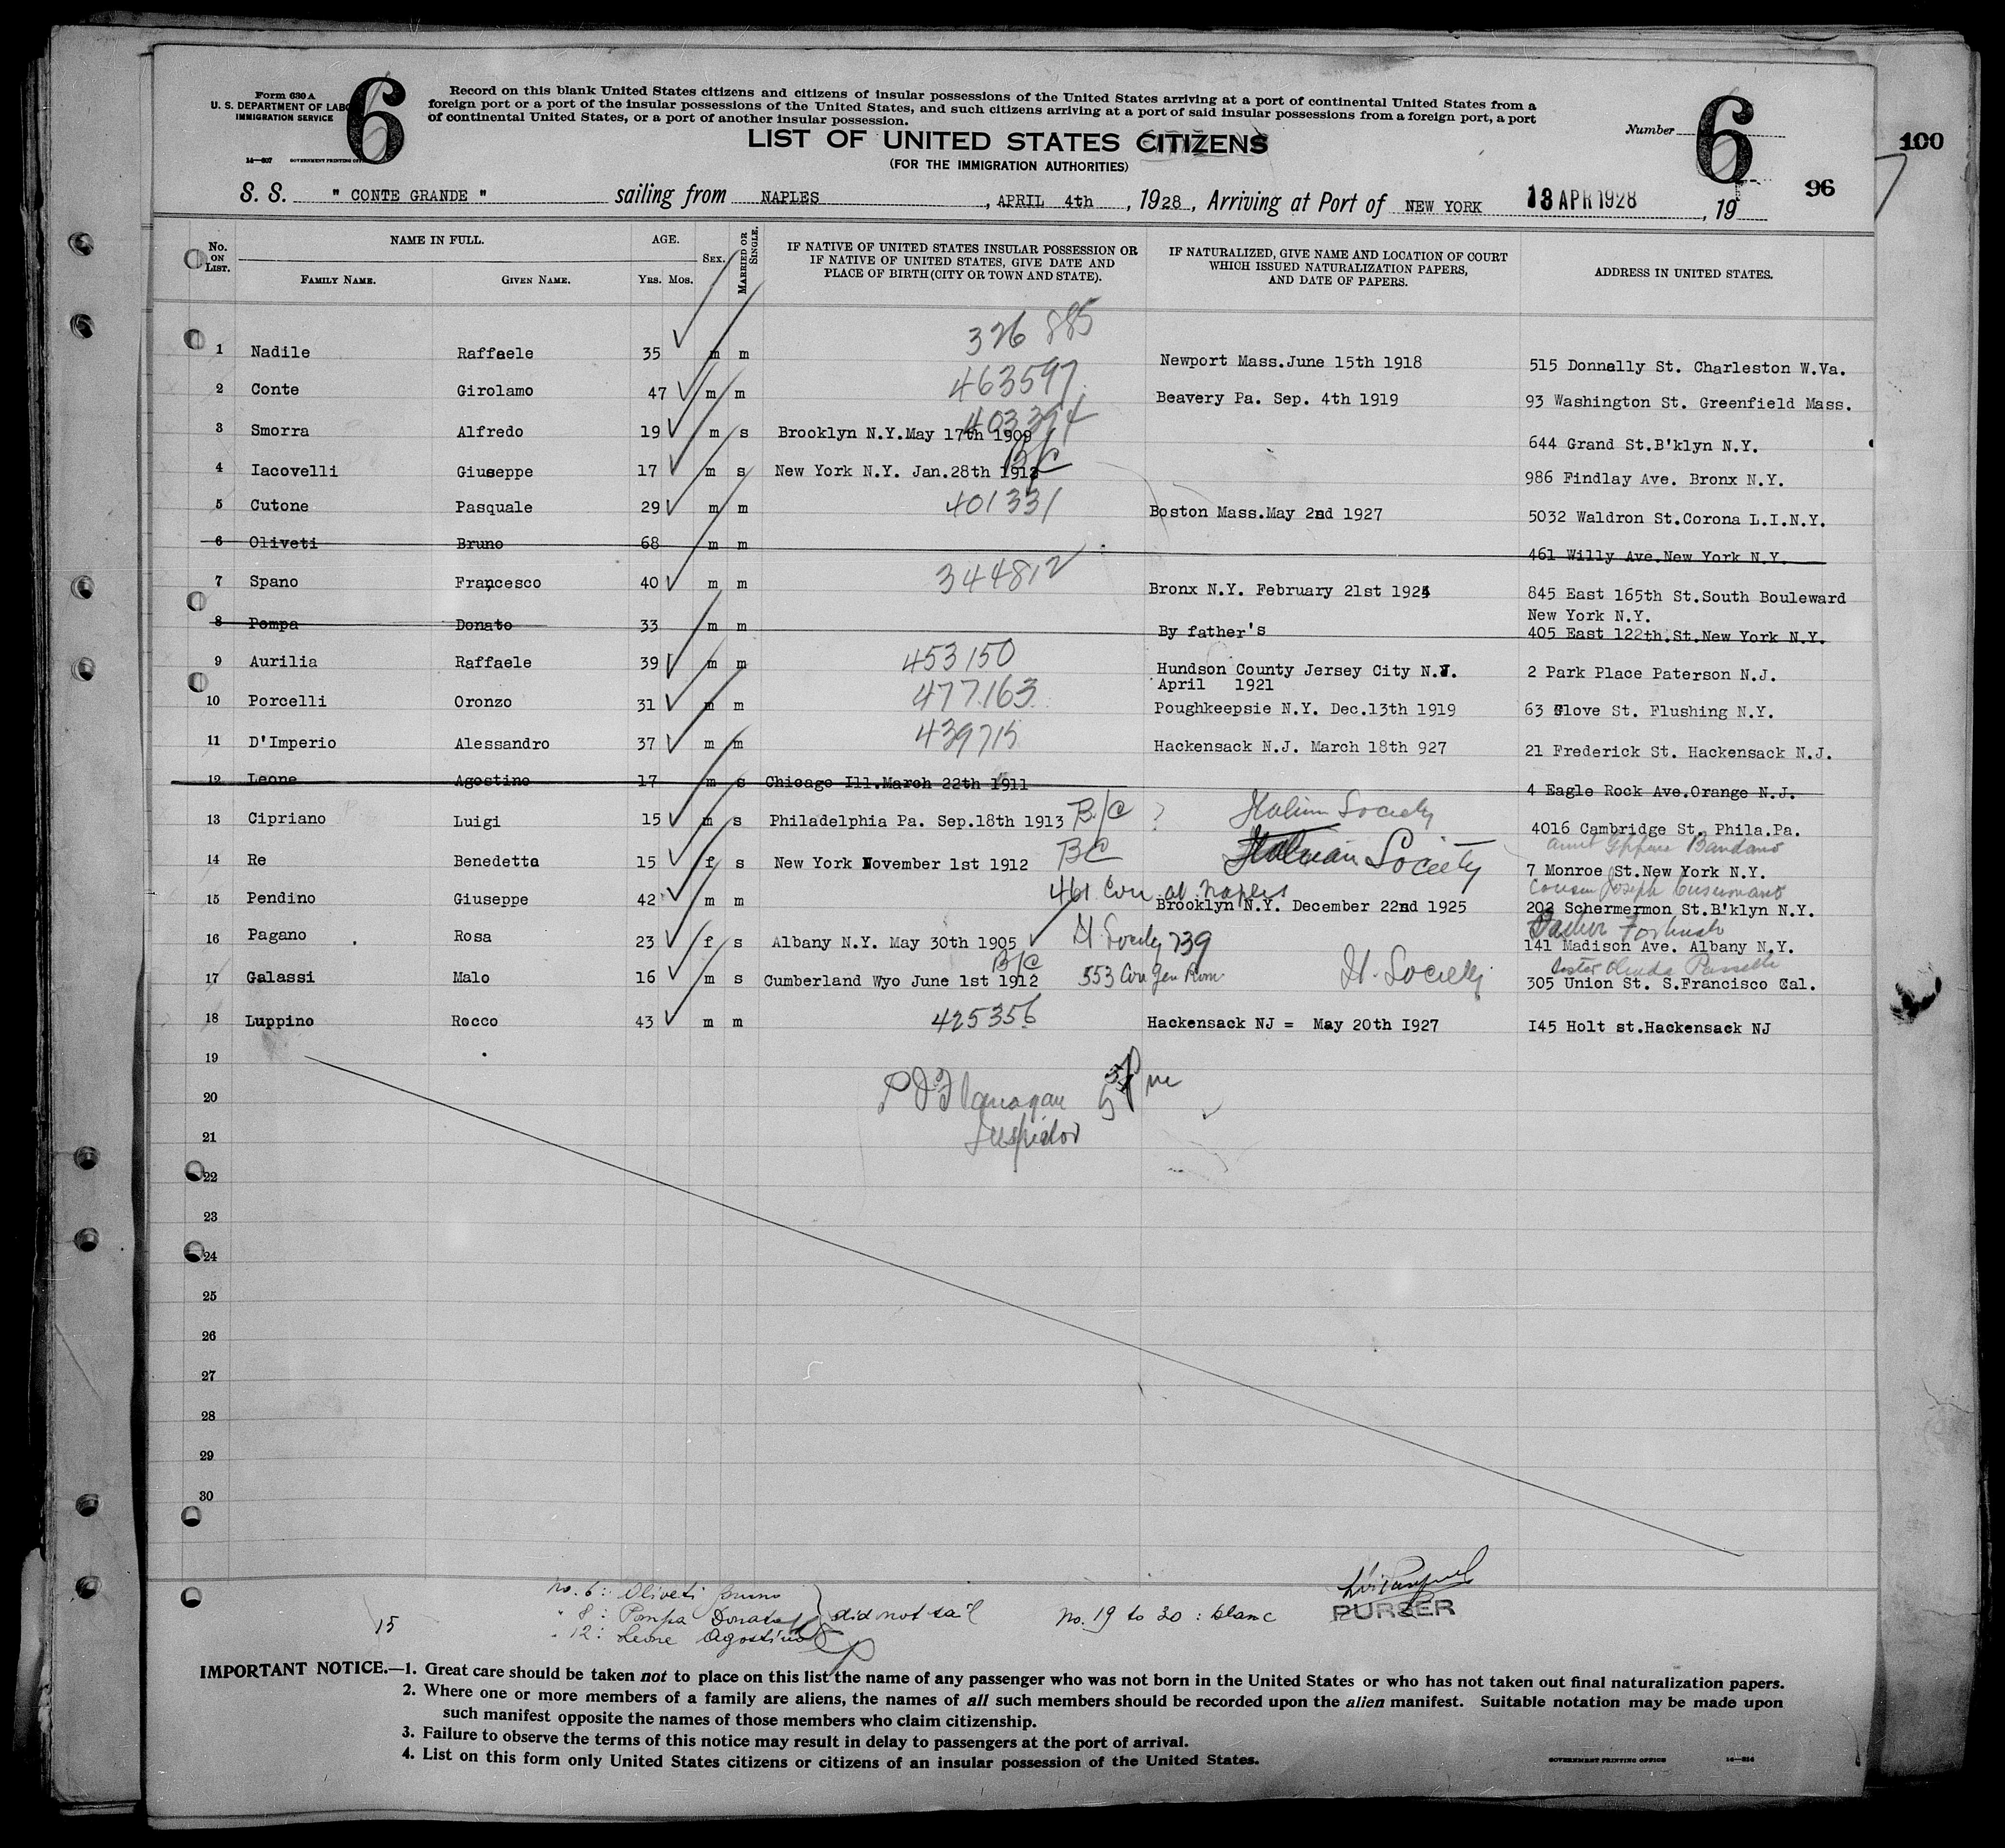 Form 630 A
U. S. DEPARTMENT OF LABO
IMMIGRATION SERVICE
14—607 GOVERNMENT PRINTING OFFICE
6
Record on this blank United States citizens and citizens of insular possessions of the United States arriving at a port of continental United States from a
foreign port or a port of the insular possessions of the United States, and such citizens arriving at a port of said insular possessions from a foreign port, a port
of continental United States, or a port of another insular possession.
LIST OF UNITED STATES CITIZENS
(FOR THE IMMIGRATION AUTHORITIES)
Number 6
100
96
S. S. " CONTE GRANDE " sailing from NAPLES , APRIL 4th , 1928 , Arriving at Port of NEW YORK 13 APR 1928 , 19
No. ON LIST. NAME IN FULL. FAMILY NAME. GIVEN NAME. AGE. YRS. MOS. SEX. MARRIED OR SINGLE. IF NATIVE OF UNITED STATES INSULAR POSSESSION OR IF NATIVE OF UNITED STATES, GIVE DATE AND PLACE OF BIRTH (CITY OR TOWN AND STATE). IF NATURALIZED, GIVE NAME AND LOCATION OF COURT WHICH ISSUED NATURALIZATION PAPERS, AND DATE OF PAPERS. ADDRESS IN UNITED STATES.
1 Nadile Raffaele 35 m m 326 885 Newport Mass.June 15th 1918 515 Donnally St. Charleston W.Va.
2 Conte Girolamo 47 m m 463597 Beavery Pa. Sep. 4th 1919 93 Washington St. Greenfield Mass.
3 Smorra Alfredo 19 m s Brooklyn N.Y.May 17th 1909 403394 644 Grand St.B'klyn N.Y.
4 Iacovelli Giuseppe 17 m s New York N.Y. Jan.28th 1912 B/C 986 Findlay Ave. Bronx N.Y.
5 Cutone Pasquale 29 m m 401331 Boston Mass.May 2nd 1927 5032 Waldron St.Corona L.I.N.Y.
6 Oliveti Bruno 68 m m 461 Willy Ave.New York N.Y.
7 Spano Francesco 40 m m 344812 Bronx N.Y. February 21st 1924 845 East 165th St.South Bouleward
New York N.Y.
8 Pompa Donato 33 m m By father's 405 East 122th.St.New York N.Y.
9 Aurilia Raffaele 39 m m 453150 Hundson County Jersey City N.J. 2 Park Place Paterson N.J.
April 1921
10 Porcelli Oronzo 31 m m 477163 Poughkeepsie N.Y. Dec.13th 1919 63 Glove St. Flushing N.Y.
11 D'Imperio Alessandro 37 m m 439715 Hackensack N.J. March 18th 927 21 Frederick St. Hackensack N.J.
12 Leone Agostino 17 m s Chicago Ill.March 22th 1911 4 Eagle Rock Ave.Orange N.J.
13 Cipriano Luigi 15 m s Philadelphia Pa. Sep.18th 1913 B/C ? Italian Society 4016 Cambridge St. Phila.Pa.
14 Re Benedetta 15 f s New York November 1st 1912 BC Italian Society aunt Bandano
7 Monroe St.New York N.Y.
15 Pendino Giuseppe 42 m m 461 Con at Naples Brooklyn N.Y. December 22nd 1925 Cousin Joseph
202 Schermermon St.B'klyn N.Y.
16 Pagano Rosa 23 f s Albany N.Y. May 30th 1905 It Society 739 141 Madison Ave. Albany N.Y.
17 Galassi Malo 16 m s Cumberland Wyo June 1st 1912 B/C 553 Con Gen Rom It. Society Sister
305 Union St. S.Francisco Cal.
18 Luppino Rocco 43 m m 425356 Hackensack NJ = May 20th I927 I45 Holt st.Hackensack NJ
19
20 P J Flanagan
21 Inspector
22
23
24
25
26
27
28
29
30
15
no. 6: Oliveti Bruno
" 8: Pompa Donato did not sail
" 12: Leone Agostino
no. 19 to 30 : blanc
PURSER
IMPORTANT NOTICE.—1. Great care should be taken not to place on this list the name of any passenger who was not born in the United States or who has not taken out final naturalization papers.
2. Where one or more members of a family are aliens, the names of all such members should be recorded upon the alien manifest. Suitable notation may be made upon
such manifest opposite the names of those members who claim citizenship.
3. Failure to observe the terms of this notice may result in delay to passengers at the port of arrival.
4. List on this form only United States citizens or citizens of an insular possession of the United States.
GOVERNMENT PRINTING OFFICE 14—214